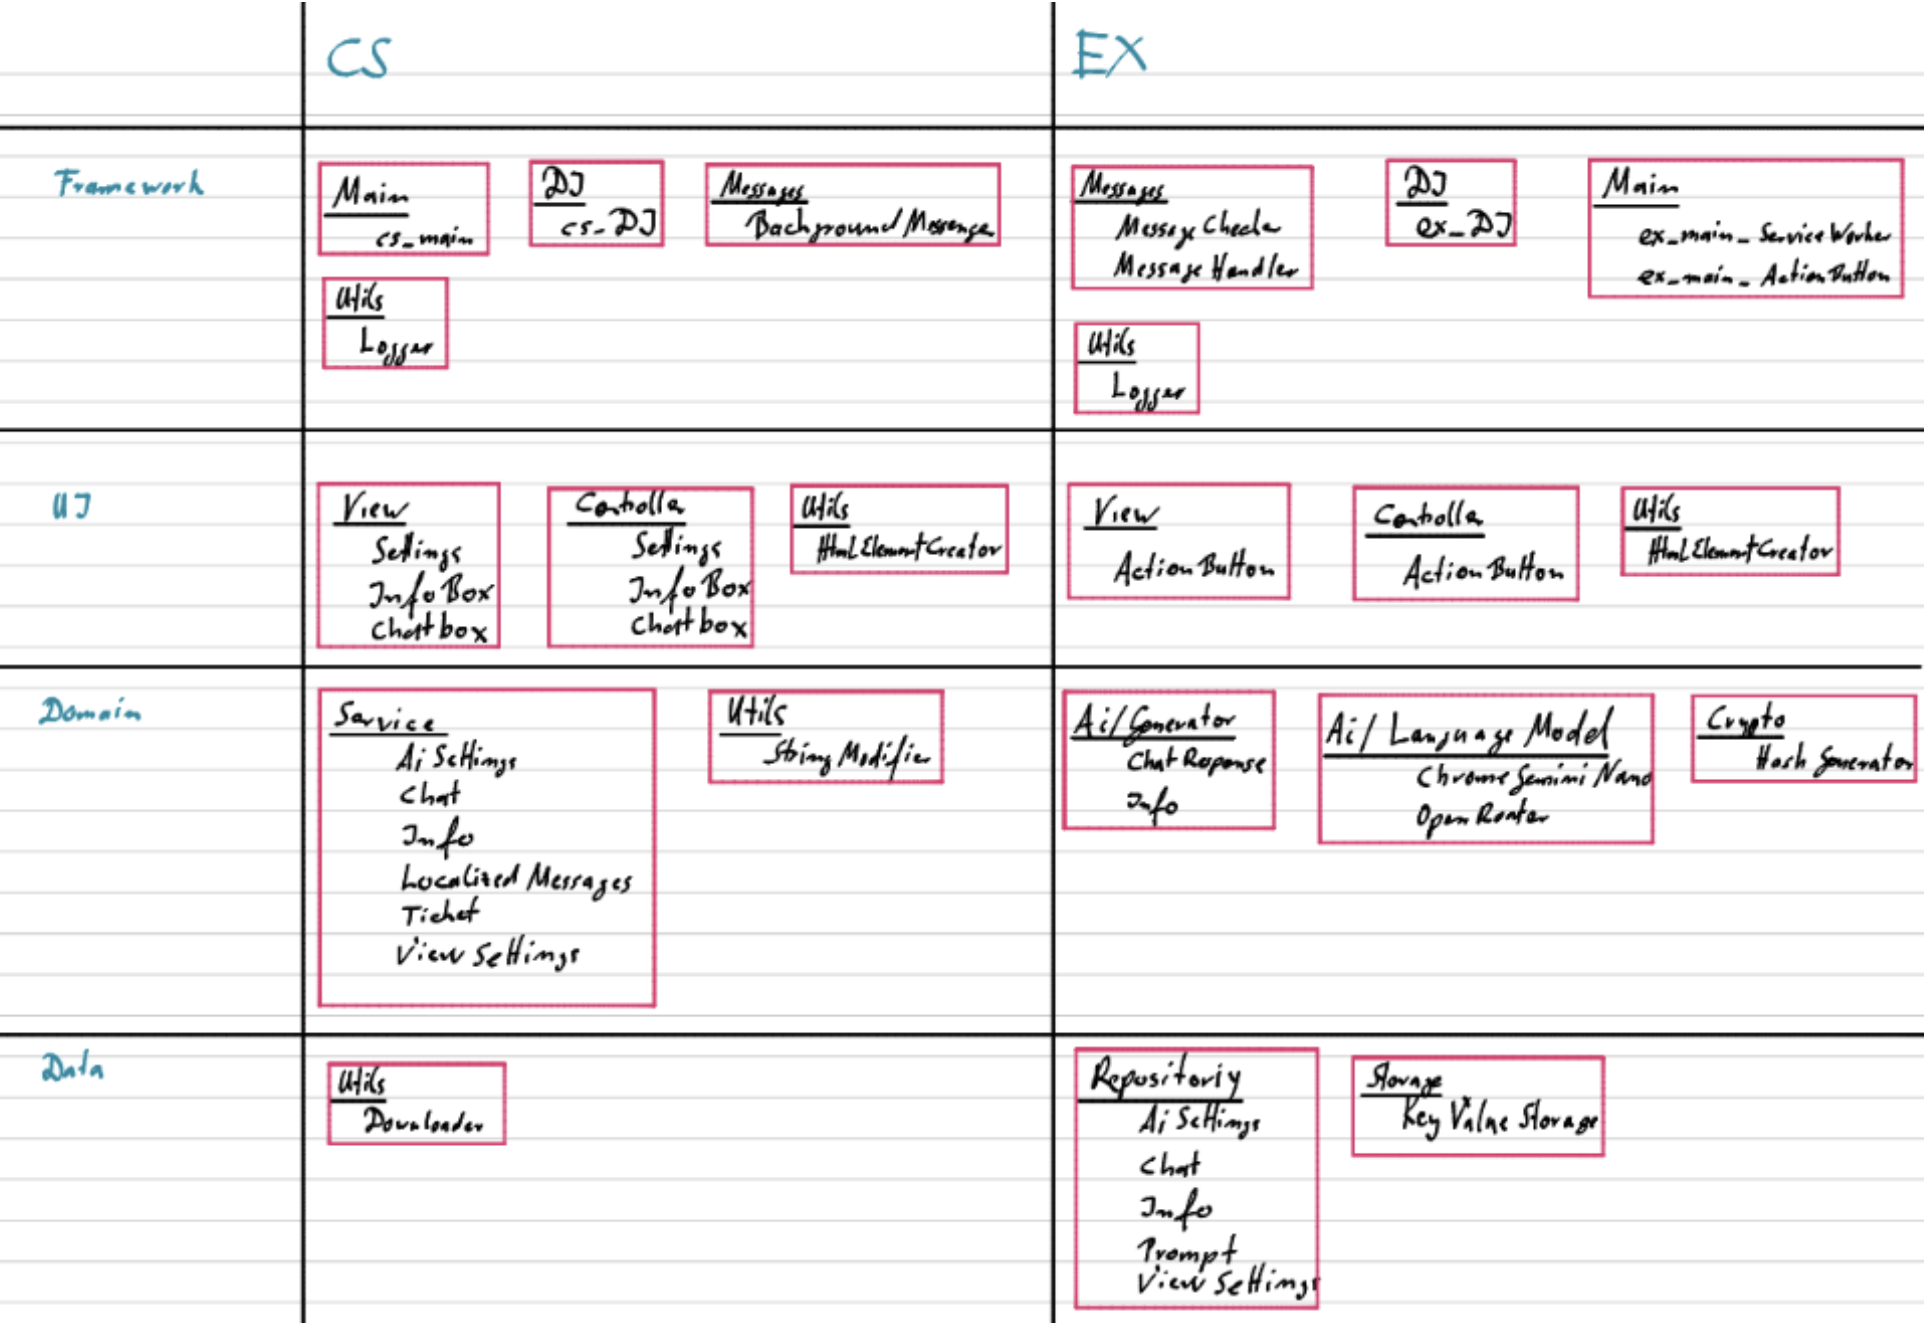 CS
EX
Framework
Main
cs_main
DI
cs_DI
Messages
Background Messenger
Utils
Logger
Messages
Message Checker
Message Handler
DI
ex_DI
Main
ex_main_Service Worker
ex_main_Action Button
Utils
Logger
UI
View
Settings
Info Box
Chatbox
Controller
Settings
Info Box
Chatbox
Utils
Html Element Creator
View
Action Button
Controller
Action Button
Utils
Html Element Creator
Domain
Service
Ai Settings
Chat
Info
Localized Messages
Ticket
View Settings
Utils
String Modifier
Ai/Generator
Chat Reponse
Info
Ai/ Language Model
Chrome Gemini Nano
Open Router
Crypto
Hash Generator
Data
Utils
Downloader
Repositoriy
Ai Settings
Chat
Info
Prompt
View Settings
Storage
Key Value Storage